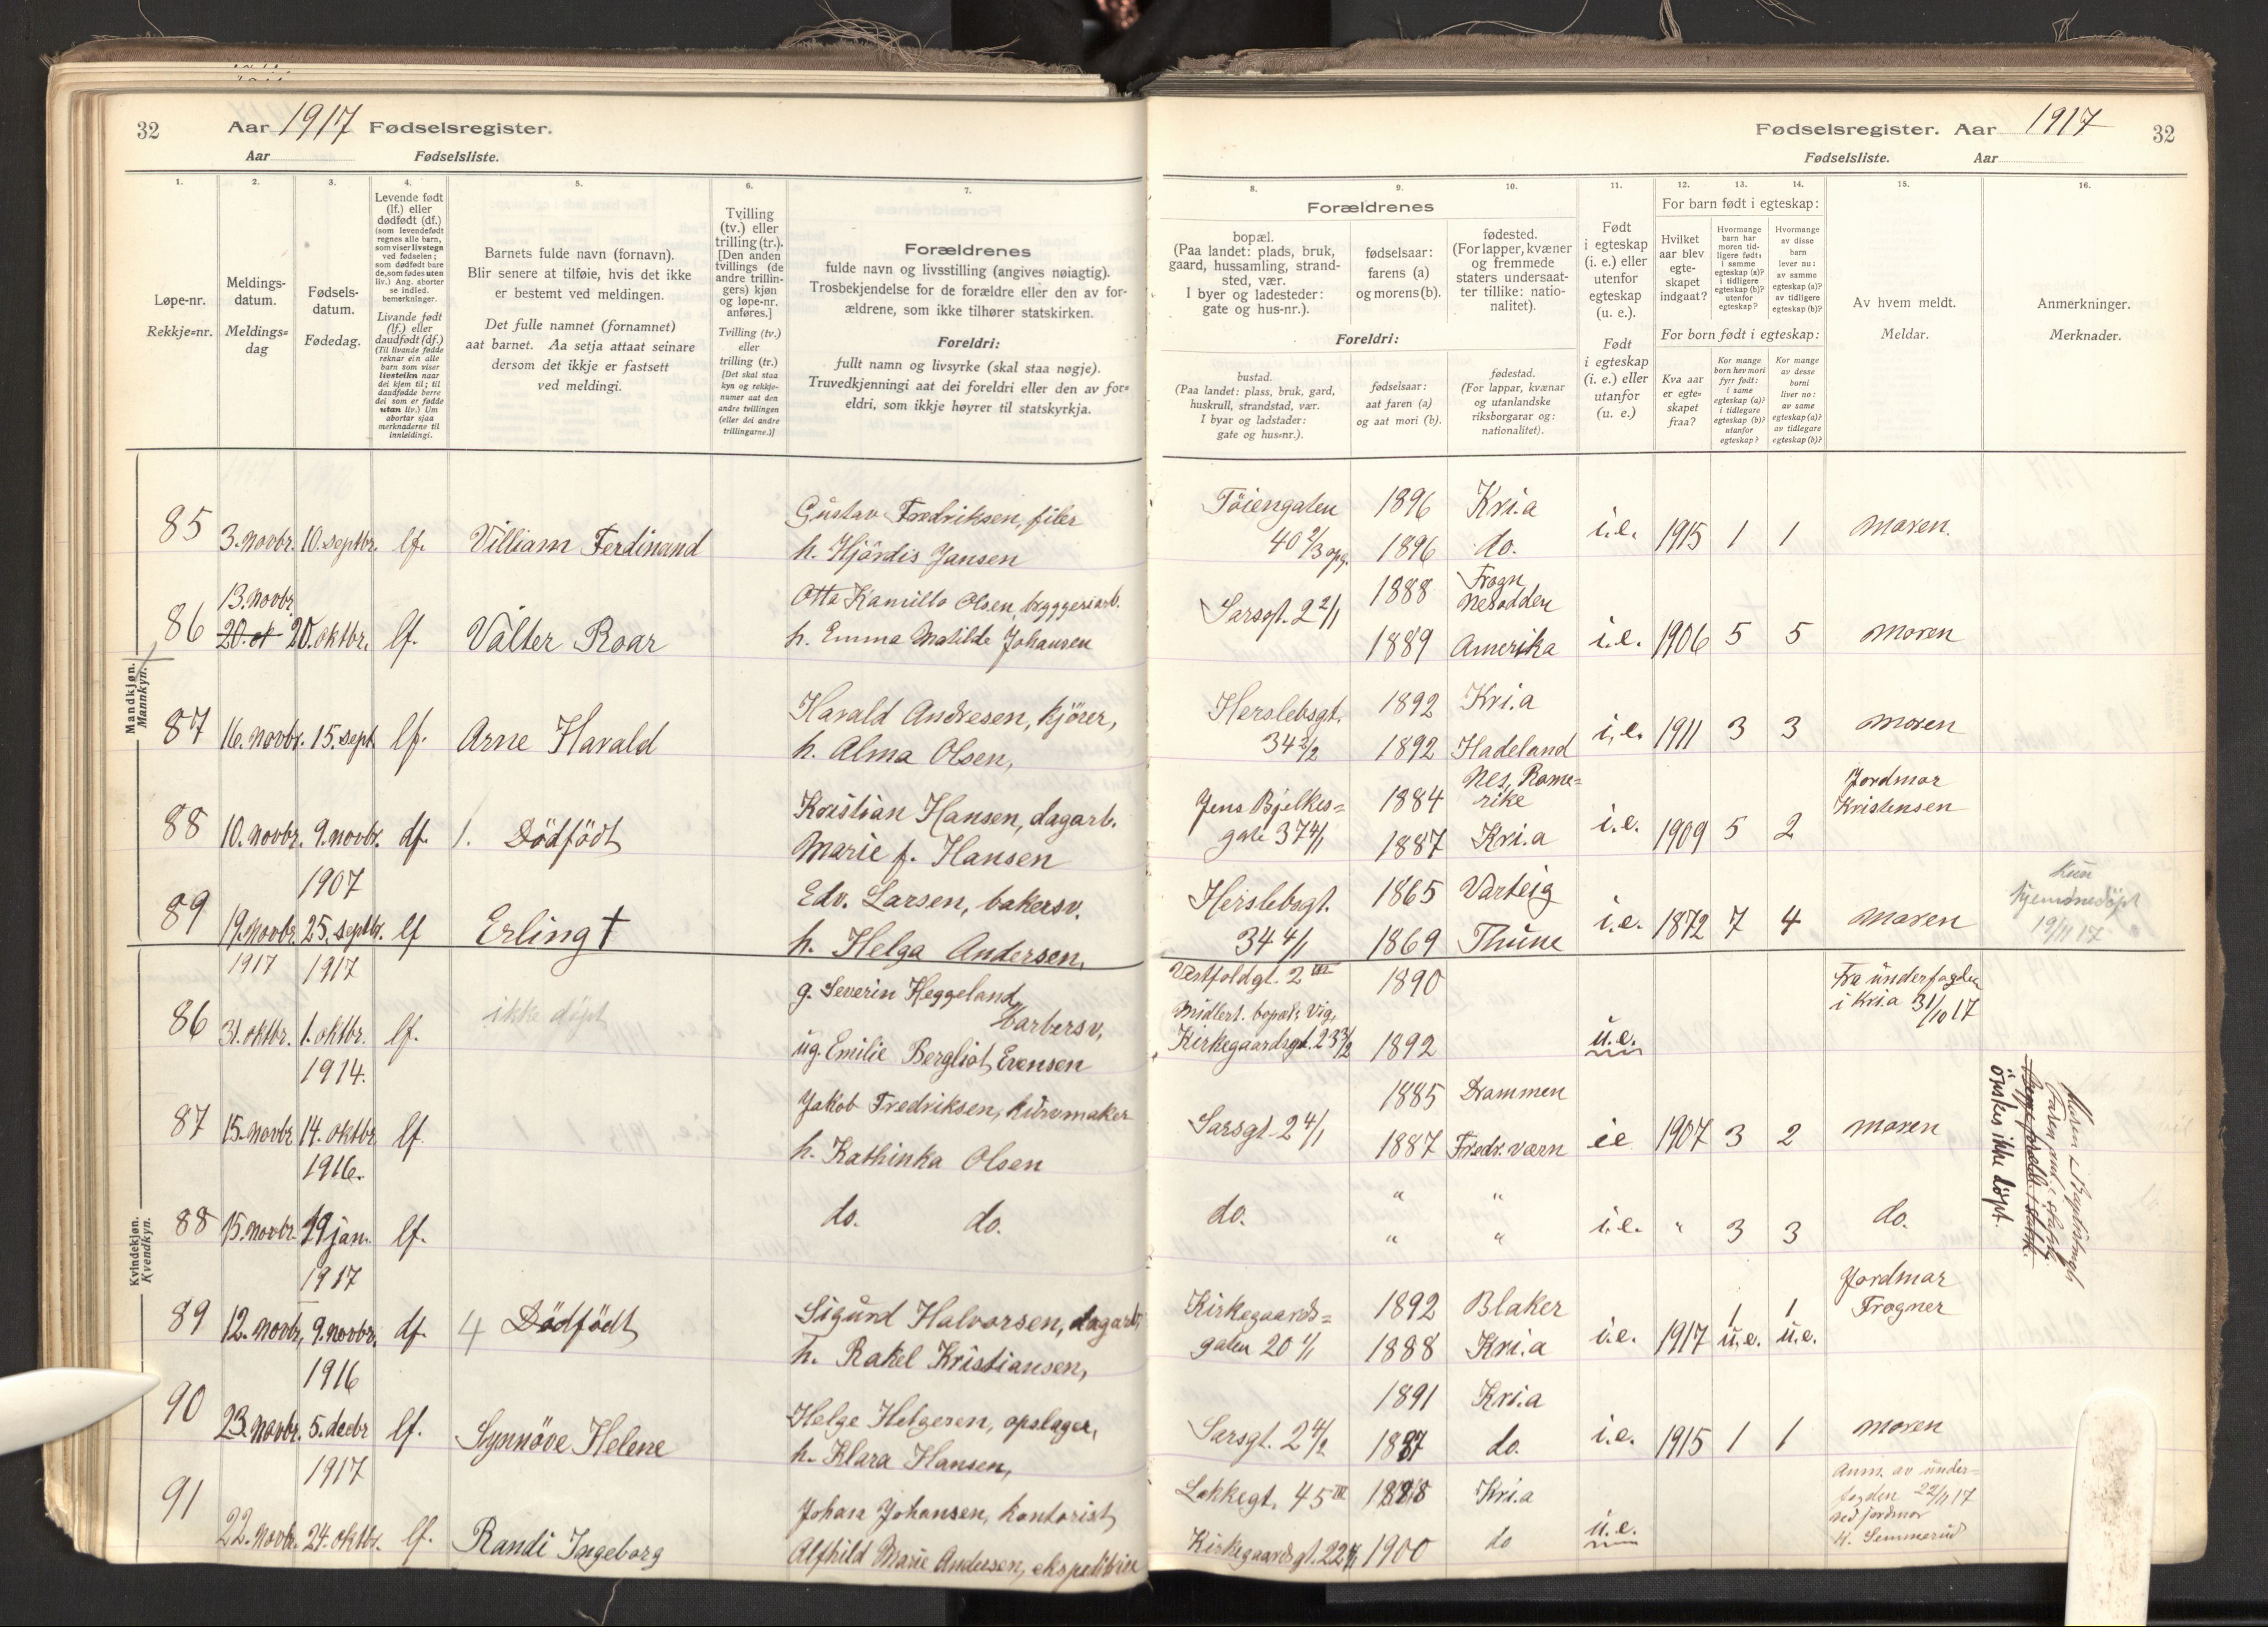 32 Aar 1917 Fødselsregister.
Aar Fødselsliste.
1. 2. 3. 4. 5. 6. 7.
Løpe-nr.
Rekkje-nr.
Meldings-
datum.
Meldings-
dag
Fødsels-
datum.
Fødedag.
Levende født
(lf.) eller
dødfødt (df.)
(som levendefødt
regnes alle barn,
som viser livstegn
ved fødselen;
som dødfødt bare
de, som fødes uten
liv.) Ang. aborter
se indled.
bemerkninger.
Livande født
(lf.) eller
daudfødt (df.)
(Til livande fødde
reknar ein alle
barn som viser
livsteikn naar
dei kjem til; til
daudfødde berre
dei som er fødde
utan liv.) Um
abortar sjaa
merknaderne til
innleidingi.
Barnets fulde navn (fornavn).
Blir senere at tilføie, hvis det ikke
er bestemt ved meldingen.
Det fulle namnet (fornamnet)
aat barnet. Aa setja attaat seinare
dersom det ikkje er fastsett
ved meldingi.
Tvilling
(tv.) eller
trilling (tr.).
[Den anden
tvillings (de
andre trillin-
gers) kjøn
og løpe-nr.
anføres.]
Tvilling (tv.)
eller
trilling (tr.)
[Det skal staa
kyn og rekkje-
numer aat den
andre tvillingen
(eller dei andre
trillingarne.)]
Forældrenes
fulde navn og livsstilling (angives nøiagtig).
Trosbekjendelse for de forældre eller den av for-
ældrene, som ikke tilhører statskirken.
Foreldri:
fullt namn og livsyrke (skal staa nøgje).
Truvedkjenningi aat dei foreldri eller den av for-
eldri, som ikkje høyrer til statskyrkja.
Mandkjøn.
Mannkyn.
85 3. novbr. 10. septbr. lf. Villiam Ferdinand
Gustav Fredriksen, filer
h. Hjördis Jansen
13. novbr.
86 20. ok 20. oktbr. lf. Valter Roar
Otto Kamillo Olsen, bryggeriarb.
h. Emma Matilde Johansen
87 16. novbr. 15. sept. lf. Arne Harald
Harald Andresen, kjörer,
h. Alma Olsen,
88 10. novbr. 9. novbr. df. 1. Dödfödt
Kristian Hansen, dagarb.
Marie f. Hansen
1907
89 19. novbr. 25. septbr. lf Erling †
Edv. Larsen, bakersv.
h. Helga Andersen,
Kvindekjøn.
Kvendkyn.
1917 1917
86 31. oktbr. 1. oktbr. lf. ikke döpt
g. Severin Heggeland,
barbersv,
ug. Emilie Bergliot Evensen
1914.
87 15. novbr 14. oktbr. lf.
Jakob Fredriksen, kurvmaker
h. Kathinka Olsen
1916.
88 15. novbr. 19 jan. lf.
do. do.
1917
89 12. novbr, 9. novbr. df. 4 Dödfödt
Sigurd Halvorsen, dagarb.
h. Rakel Kristiansen,
1916
90 23. novbr. 5. decbr lf. Synnöve Helene
Helge Helgesen, opslager,
h. Klara Hansen,
1917
91 22. novbr. 24. oktbr. lf. Randi Ingeborg
Johan Johansen, kontorist
Alfhild Marie Andersen, ekspeditrice
Fødselsregister. Aar 1917 32
Fødselsliste. Aar
8. 9. 10. 11. 12. 13. 14. 15. 16.
Forældrenes
bopæl.
(Paa landet: plads, bruk,
gaard, hussamling, strand-
sted, vær.
I byer og ladesteder:
gate og hus-nr.).
fødselsaar:
farens (a)
og morens (b).
fødested.
(For lapper, kvæner
og fremmede
staters undersaat-
ter tillike: natio-
nalitet).
Foreldri:
bustad.
(Paa landet: plass, bruk, gard,
huskrull, strandstad, vær.
I byar og ladstader:
gate og hus-nr.).
fødselsaar:
aat faren (a)
og aat mori (b).
fødestad.
(For lappar, kvænar
og utanlandske
riksborgarar og:
nationalitet).
Født
i egteskap
(i. e.) eller
utenfor
egteskap
(u. e.).
Født
i egteskap
(i. e.) eller
utanfor
egteskap
(u. e.)
For barn født i egteskap:
Hvilket
aar blev
egte-
skapet
indgaat?
Hvormange
barn har
moren tid-
ligere født:
i samme
egteskap (a)?
i tidligere
egteskap (b)?
utenfor
egteskap?
Hvormange
av disse
barn
lever nu:
av samme
egteskap (a)?
av tidligere
egteskap (b)?
For born født i egteskap:
Kva aar
er egte-
skapet
fraa?
Kor mange
born hev mori
fyrr født:
i same
egteskap (a)?
i tidlegare
egteskap (b)?
utanfor
egteskap?
Kor mange
av desse
borni
liver no:
av same
egteskap (a)?
av tidlegare
egteskap (b)?
Av hvem meldt.
Meldar.
Anmerkninger.
Merknader.
Töiengaten 1896 Kri.a
40 2/3 opg. 1896 do. i.e. 1915 1 1 moren.
Sarsgt. 2 2/1 1888 Frogn
Nesodden
1889 Amerika i.e. 1906 5 5 moren
Herslebsgt. 1892 Kri.a
34 2/2 1892 Hadeland i.e. 1911 3 3 moren
Jens Bjelkes= 1884 Nes, Rome=
rike
gate 37 4/1 1887 Kri.a i.e. 1909 5 2 Jordmor
Kristensen
Herslebsgt. 1865 Varteig
34 4/1 1869 Thune i.e. 1872 7 4 moren
kun
hjemmedöpt
19/11 17
Vestfoldgt. 2 III 1890
Midlert. bopæl: Vig,
Kirkegaardsgt. 23 3/2 1892 u.e.
Fra underfogden
i Kria 31/10 17
1885 Drammen
Sarsgt. 2 4/1 1887 Fredr.værn ie 1907 3 2 moren
do. " "
" " i.e. " 3 3 do.
önskes ikke döpt.
Kirkegaards= 1892 Blaker
gaten 20 1/1 1888 Kri.a i.e. 1917 1 u.e. 1 u.e.
Jordmor
Frogner
1891 Kri.a
Sarsgt. 2 4/2 1887 do. i.e. 1915 1 1 moren
Lakkegt. 45 III 1888 Kri.a
Kirkegaardsgt. 22 1900 do u.e.
Anm. av under=
fogden 22/11 17
ved jordmor